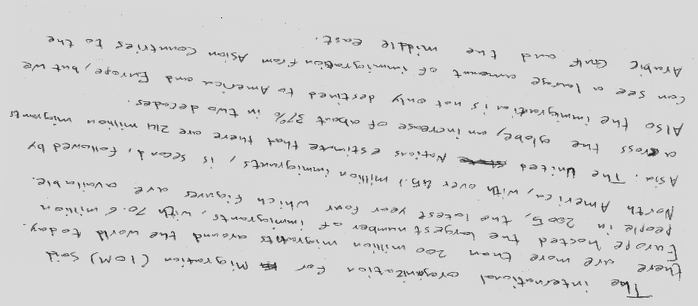 The international organization for Migration (IOM) said
there are more than 200 million migrants around the world today.
Europe hosted the largest number of immigrants, with 70.6 million
people in 2005, the latest year four which figures are available.
North America, with over 45.1 million immigrants, is second, followed by
Asia. The United Nations estimate that there are 214 million migrants
across the globe, an increase of about 37% in two decades.
Also the immigration is not only destined to America and Europe, but we
can see a large amount of immigration from Asian Countries to the
Arabic Gulf and the middle east.